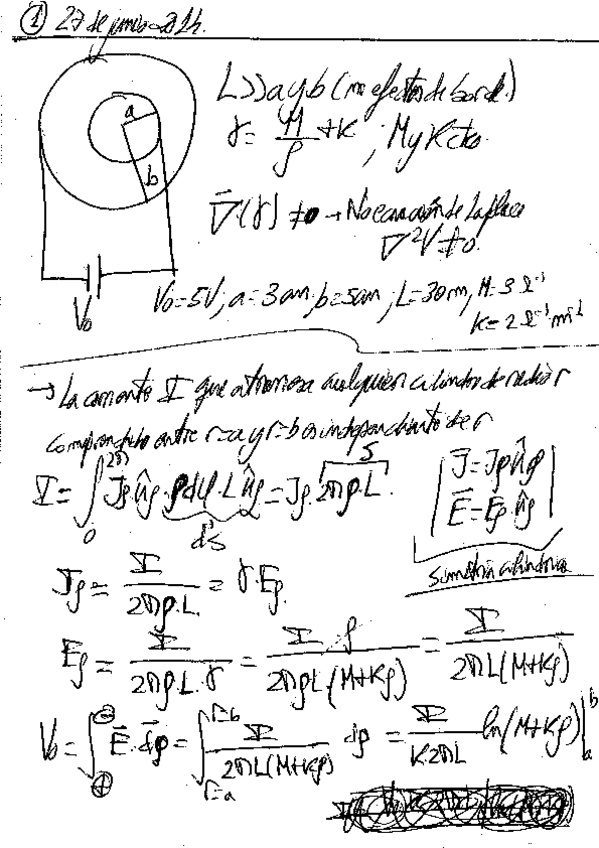 ① 27 de junio-21h.
a
b
V₀
L>>a y b (no efectos de borde)
γ = M/ρ + K ; M y K ctes.
∇(γ) ≠ 0 → No ecuación de Laplace
∇²V ≠ 0
V₀ = 5V; a = 3 cm, b = 5 cm; L = 30 m, M = 3 Ω⁻¹
K = 2 Ω⁻¹ m⁻¹
→ La corriente I que atraviesa cualquier cilindro de radio r
comprendido entre r=a y r=b es independiente de r
I = ∫₀^{2π} Jρ ûρ · ρdφ·L ûρ = Jρ · 2πρ·L
S
dS
J̄ = Jρ ûρ
Ē = Eρ ûρ
Simetría cilíndrica
Jρ = I / 2πρ·L = γ·Eρ
Eρ = I / 2πρ·L·γ = I·ρ / 2πρL(M+Kρ) = I / 2πL(M+Kρ)
V₀ = ∫_⊕^⊖ Ē·dρ̄ = ∫_{r=a}^{r=b} I / 2πL(M+Kρ) dρ = I / K·2πL ln(M+Kρ)|_a^b